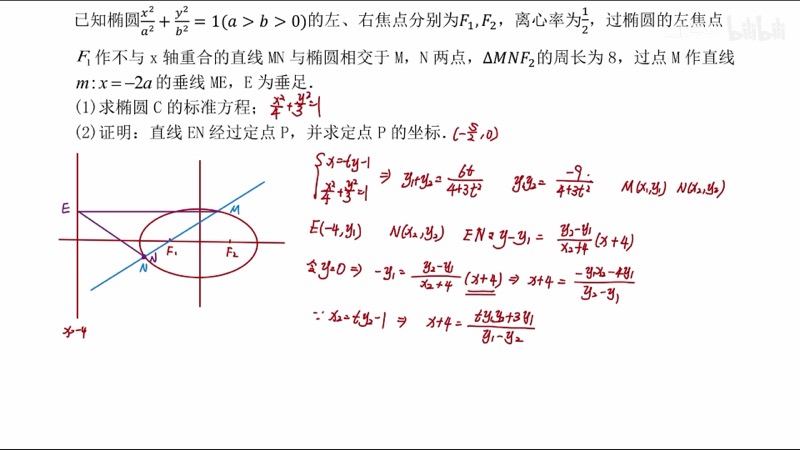 已知椭圆x²/a² + y²/b² = 1(a > b > 0)的左、右焦点分别为F₁,F₂，离心率为1/2，过椭圆的左焦点
F₁ 作不与 x 轴重合的直线 MN 与椭圆相交于 M，N 两点，ΔMNF₂的周长为 8，过点 M 作直线
m: x = −2a 的垂线 ME，E 为垂足．
(1)求椭圆 C 的标准方程； x²/4 + y²/3 = 1
(2)证明：直线 EN 经过定点 P，并求定点 P 的坐标． (-5/2, 0)
{ x=ty-1
x²/4 + y²/3 = 1 ⇒ y₁+y₂ = 6t/(4+3t²) y₁y₂ = -9/(4+3t²) M(x₁,y₁) N(x₂,y₂)
E(-4,y₁) N(x₂,y₂) EN: y-y₁ = (y₂-y₁)/(x₂+4) (x+4)
令y=0 ⇒ -y₁ = (y₂-y₁)/(x₂+4) (x+4) ⇒ x+4 = (-y₁x₂-4y₁)/(y₂-y₁)
∵ x₂=ty₂-1 ⇒ x+4 = (ty₁y₂+3y₁)/(y₁-y₂)
E
M
F₁
F₂
N
N
x=-4
bilibili